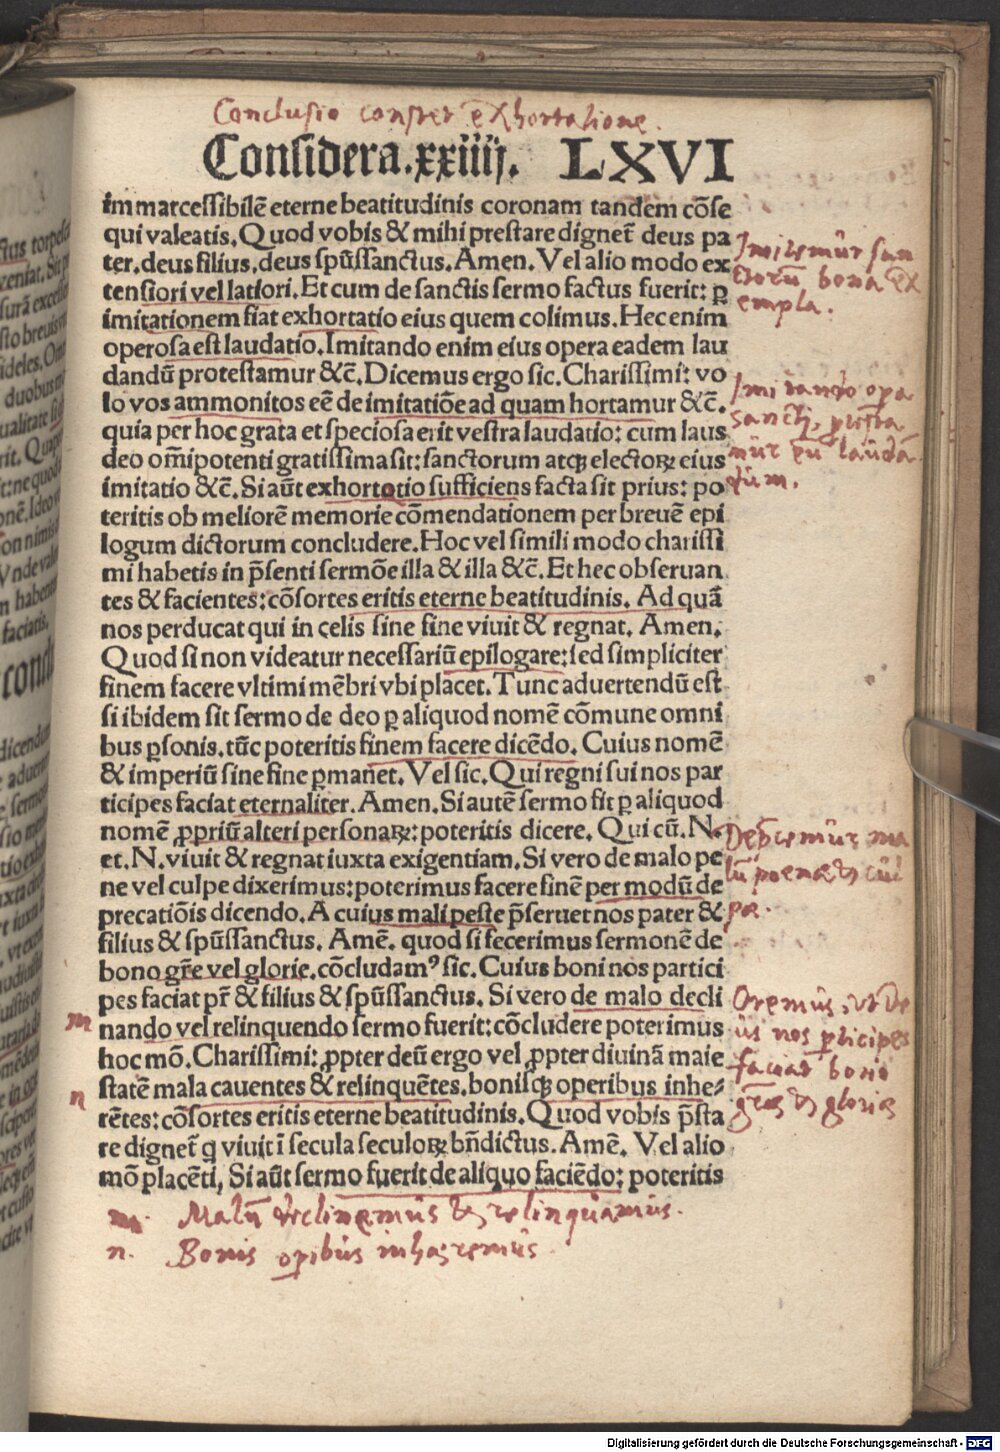 Conclusio constet exhortatione.
Considera.xxiiij. LXVI
immarcessibilē eterne beatitudinis coronam tandem cōse
qui valeatis. Quod vobis & mihi prestare dignet̄ deus pa
ter.deus filius.deus spūssanctus. Amen. Vel alio modo ex
tensiori vel latiori. Et cum de sanctis sermo factus fuerit: ꝑ
imitationem fiat exhortatio eius quem colimus. Hec enim
operosa est laudatio. Imitando enim eius opera eadem lau
dandū protestamur &c̄. Dicemus ergo sic. Charissimi: vo
lo vos ammonitos eē de imitatiōe ad quam hortamur &c̄.
quia per hoc grata et speciosa erit vestra laudatio: cum laus
deo om̄ipotenti gratissima sit: sanctorum atqꝫ electoꝝ eius
imitatio &c̄. Si aūt exhortatio sufficiens facta sit prius: po
teritis ob meliorē memorie cōmendationem per breuē epi
logum dictorum concludere. Hoc vel simili modo charissi
mi habetis in p̄senti sermōe illa & illa &c̄. Et hec obseruan
tes & facientes: cōsortes eritis eterne beatitudinis. Ad quā
nos perducat qui in celis sine fine viuit & regnat. Amen.
Quod si non videatur necessariū epilogare: sed simpliciter
finem facere vltimi mēbri vbi placet. Tunc aduertendū est
si ibidem sit sermo de deo ꝑ aliquod nomē cōmune omni
bus ꝑsonis. tūc poteritis finem facere dicēdo. Cuius nomē
& imperiū sine fine ꝑmanet. Vel sic. Qui regni sui nos par
ticipes faciat eternaliter. Amen. Si autē sermo fit ꝑ aliquod
nomē ꝓpriū alteri personaꝝ: poteritis dicere. Qui cū. N.
et. N. viuit & regnat iuxta exigentiam. Si vero de malo pe
ne vel culpe dixerimus: poterimus facere finē per modū de
precatiōis dicendo. A cuius mali peste p̄seruet nos pater &
filius & spūssanctus. Amē. quod si fecerimus sermonē de
bono gr̄e vel glorie. cōcludamꝰ sic. Cuius boni nos partici
pes faciat pr̄ & filius & spūssanctus. Si vero de malo decli
nando vel relinquendo sermo fuerit: cōcludere poterimus
hoc mō. Charissimi: ꝓpter deū ergo vel ꝓpter diuinā maie
statē mala cauentes & relinquētes. bonisqꝫ operibus inhe⸗
rētes: cōsortes eritis eterne beatitudinis. Quod vobis p̄sta
re dignet̄ q̇ viuit ī secula seculoꝝ bn̄dictus. Amē. Vel alio
mō placēti, Si aūt sermo fuerit de aliquo faciēdo: poteritis
Imitemūr san
ctorū bona ex
empla.
Imitando opa
sancti, protesta
mūr eū laūdā
dūm.
Deprecemūr ma
lū poenae & cūl
pae.
Oremūs, ūt de
ūs nos participes
faciat boni
grāe & gloriae
m
n
m. Malū declinemūs & relinqūamūs.
n. Bonis opibūs inhaeremūs.
Digitalisierung gefördert durch die Deutsche Forschungsgemeinschaft - DFG